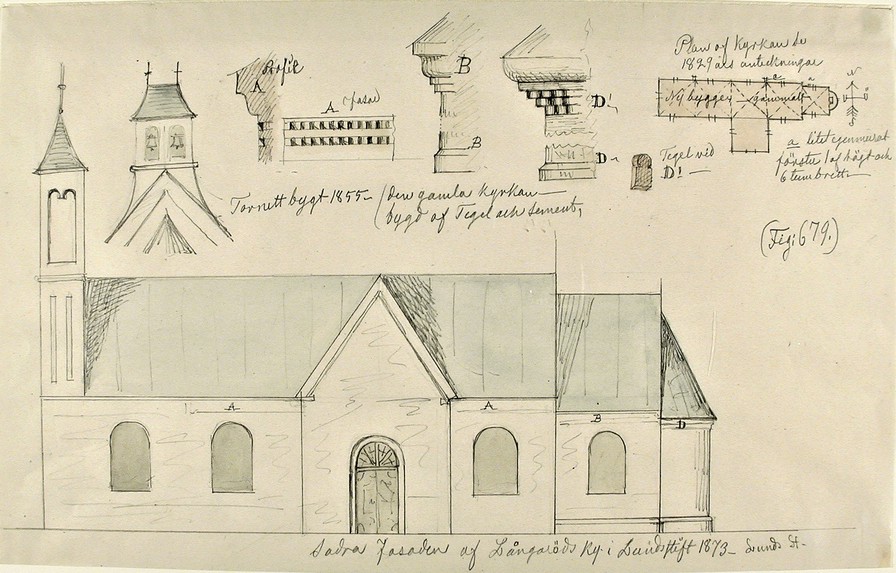 Profil
A
A Fasad
B
B
D!
D
Plan af Kyrkan de
1829 års anteckningar
Ny bygge
gammalt
a
a
N
Ö
a litet igenmurat
fönster 1 al högt och
6 tum brett
Tegel vid
D! —
Tornett bygt 1855 – (den gamla kyrkan
bygd af Tegel och sement,
(Fig: 679.)
A
A
B
D
Södra Fasaden af Långaröds Ky: i Lunds stift 1873 – Lunds St.